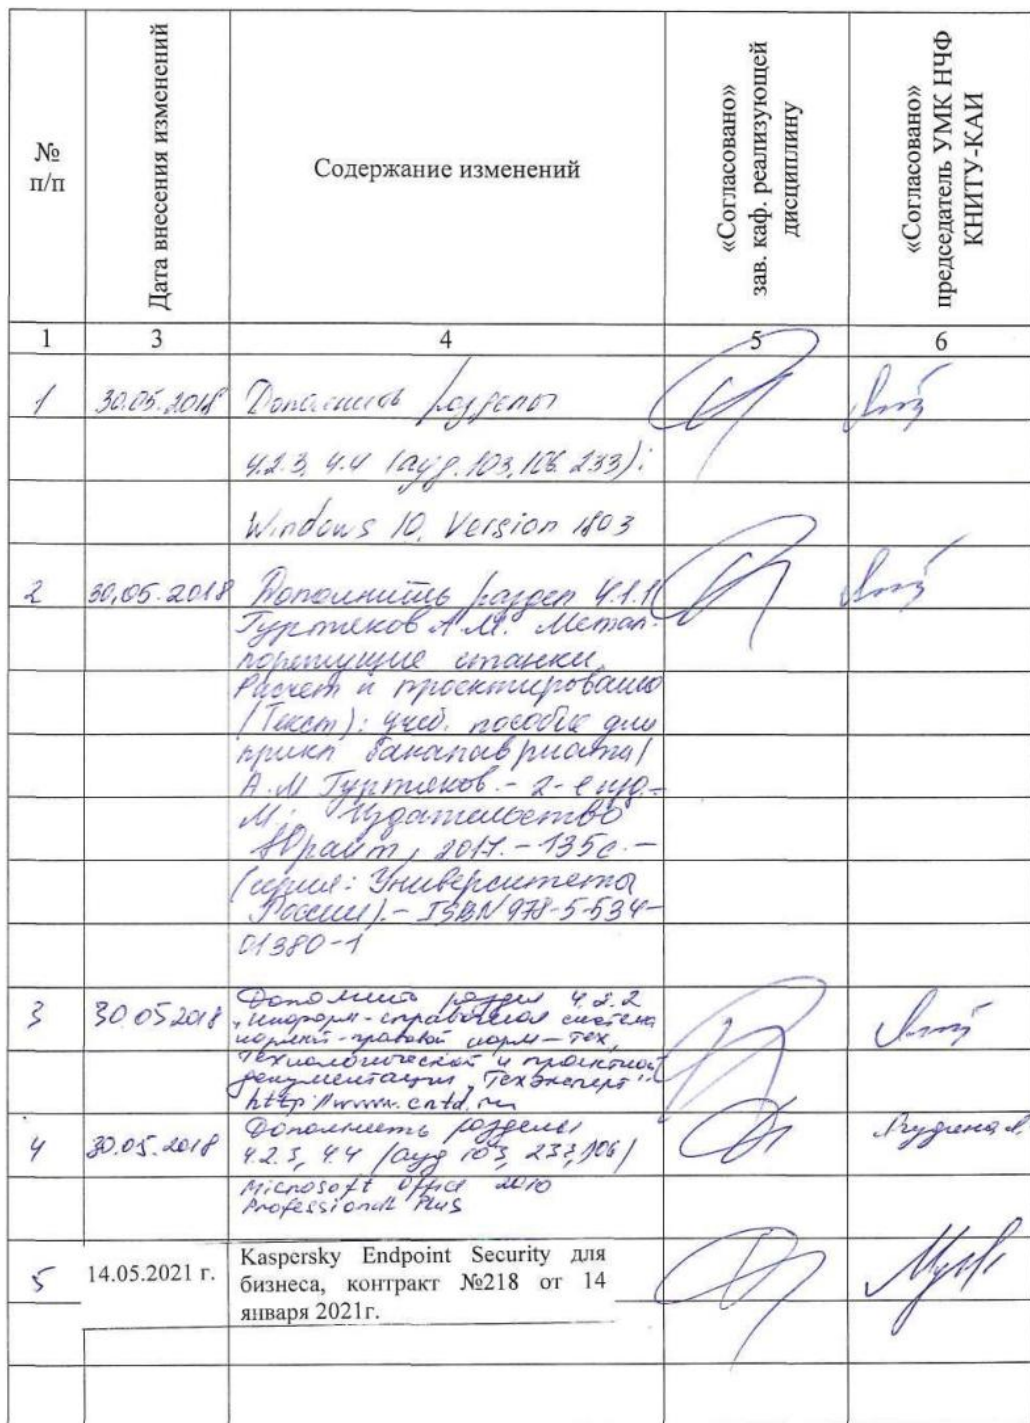 №
п/п
Дата внесения изменений
Содержание изменений
«Согласовано»
зав. каф. реализующей
дисциплину
«Согласовано»
председатель УМК НЧФ
КНИТУ-КАИ
1 3 4 5 6
1 30.05.2018 Дополнить разделы
4.2.3, 4.4 (ауд. 103, 106, 233):
Windows 10, Version 1803
2 30.05.2018 Дополнить раздел 4.1.1
Гуртяков А.М. Метал-
лорежущие станки.
Расчет и проектирование
(Текст): учеб. пособие для
прикл бакалавриата/
А.М Гуртяков. - 2-е изд.-
М.: Издательство
Юрайт, 2017. - 135с. -
(серия: Университеты
России). - ISBN 978-5-534-
01380-1
3 30.05 2018 Дополнить раздел 4.2.2
"Информ-справочная система
норм-тех,
технологической и проектной
документации "Техэксперт"
http://www.cntd.ru
4 30.05.2018 Дополнить разделы
4.2.3, 4.4 (ауд 103, 233, 106)
Microsoft Office 2010
Professional Plus
5 14.05.2021 г. Kaspersky Endpoint Security для
бизнеса, контракт №218 от 14
января 2021г.